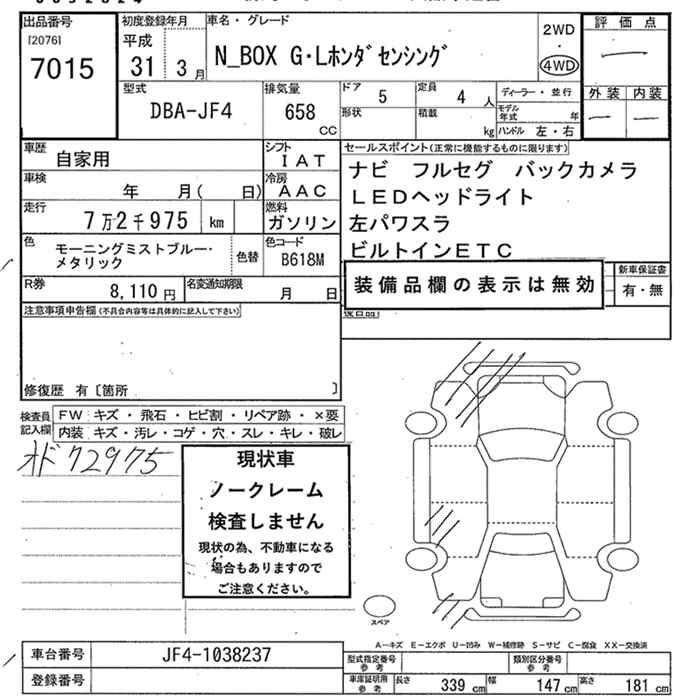 出品番号
[2076]
7015
初度登録年月
平成
31 3月
車名・グレード
N_BOX G・Lホンダセンシング
2WD
・
4WD
評価点
―
外装 内装
― ―
型式
DBA-JF4
排気量
658
CC
ドア 5
定員 4人
形状
積載 kg
ディーラー・並行
モデル年式 年
ハンドル 左・右
車歴
自家用
シフト
IAT
車検
年 月( 日)
冷房
AAC
走行
7万2千975 km
燃料
ガソリン
色
モーニングミストブルー・
メタリック
色替
色コード
B618M
R券
8,110円
名変通知期限
月 日
セールスポイント(正常に機能するものに限ります)
ナビ フルセグ バックカメラ
LEDヘッドライト
左パワスラ
ビルトインETC
装備品欄の表示は無効
新車保証書
有・無
注意事項申告欄(不具合内容等は具体的に記入して下さい)
修復歴 有〔箇所 〕
検査員
記入欄
FW キズ・飛石・ヒビ割・リペア跡・×要
内装 キズ・汚レ・コゲ・穴・スレ・キレ・破レ
オド72975
現状車
ノークレーム
検査しません
現状の為、不動車になる
場合もありますので
ご注意ください。
スペア
A-キズ E-エクボ U-凹み W-補修跡 S-サビ C-腐食 XX-交換済
車台番号
JF4-1038237
登録番号
型式指定番号
参考
類別区分番号
参考
車庫証明用
参考
長さ 339 cm
幅 147 cm
高さ 181 cm